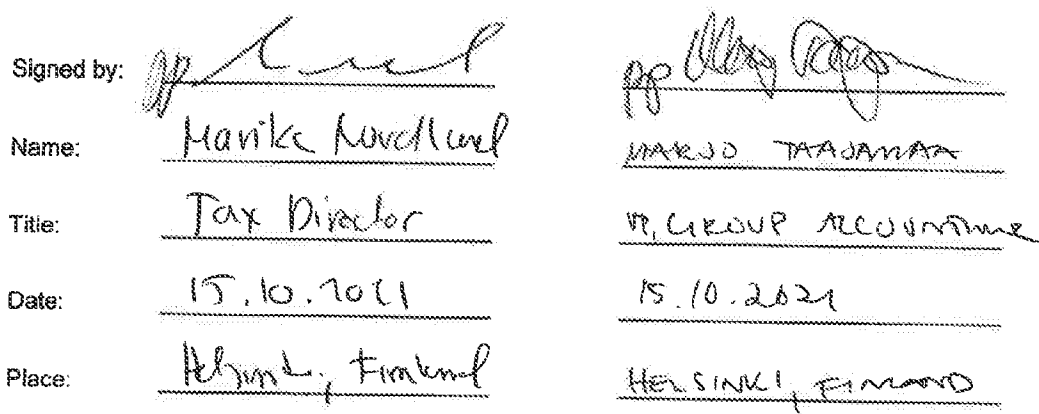 Signed by: pp pp
Name: Marika Nordlund MARJO TAAJAMAA
Title: Tax Director VP, GROUP ACCOUNTING
Date: 15.10.2021 15.10.2021
Place: Helsinki, Finland HELSINKI, FINLAND